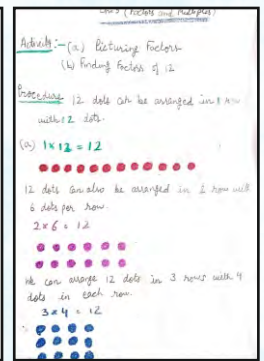 (Factors and Multiples)
Activity :- (a) Picturing Factors
(b) Finding Factors of 12
Procedure 12 dots can be arranged in 1 row
with 12 dots.
(a) 1 x 12 = 12
12 dots can also be arranged in 2 rows with
6 dots per row.
2 x 6 = 12
We can arrange 12 dots in 3 rows with 4
dots in each row.
3 x 4 = 12